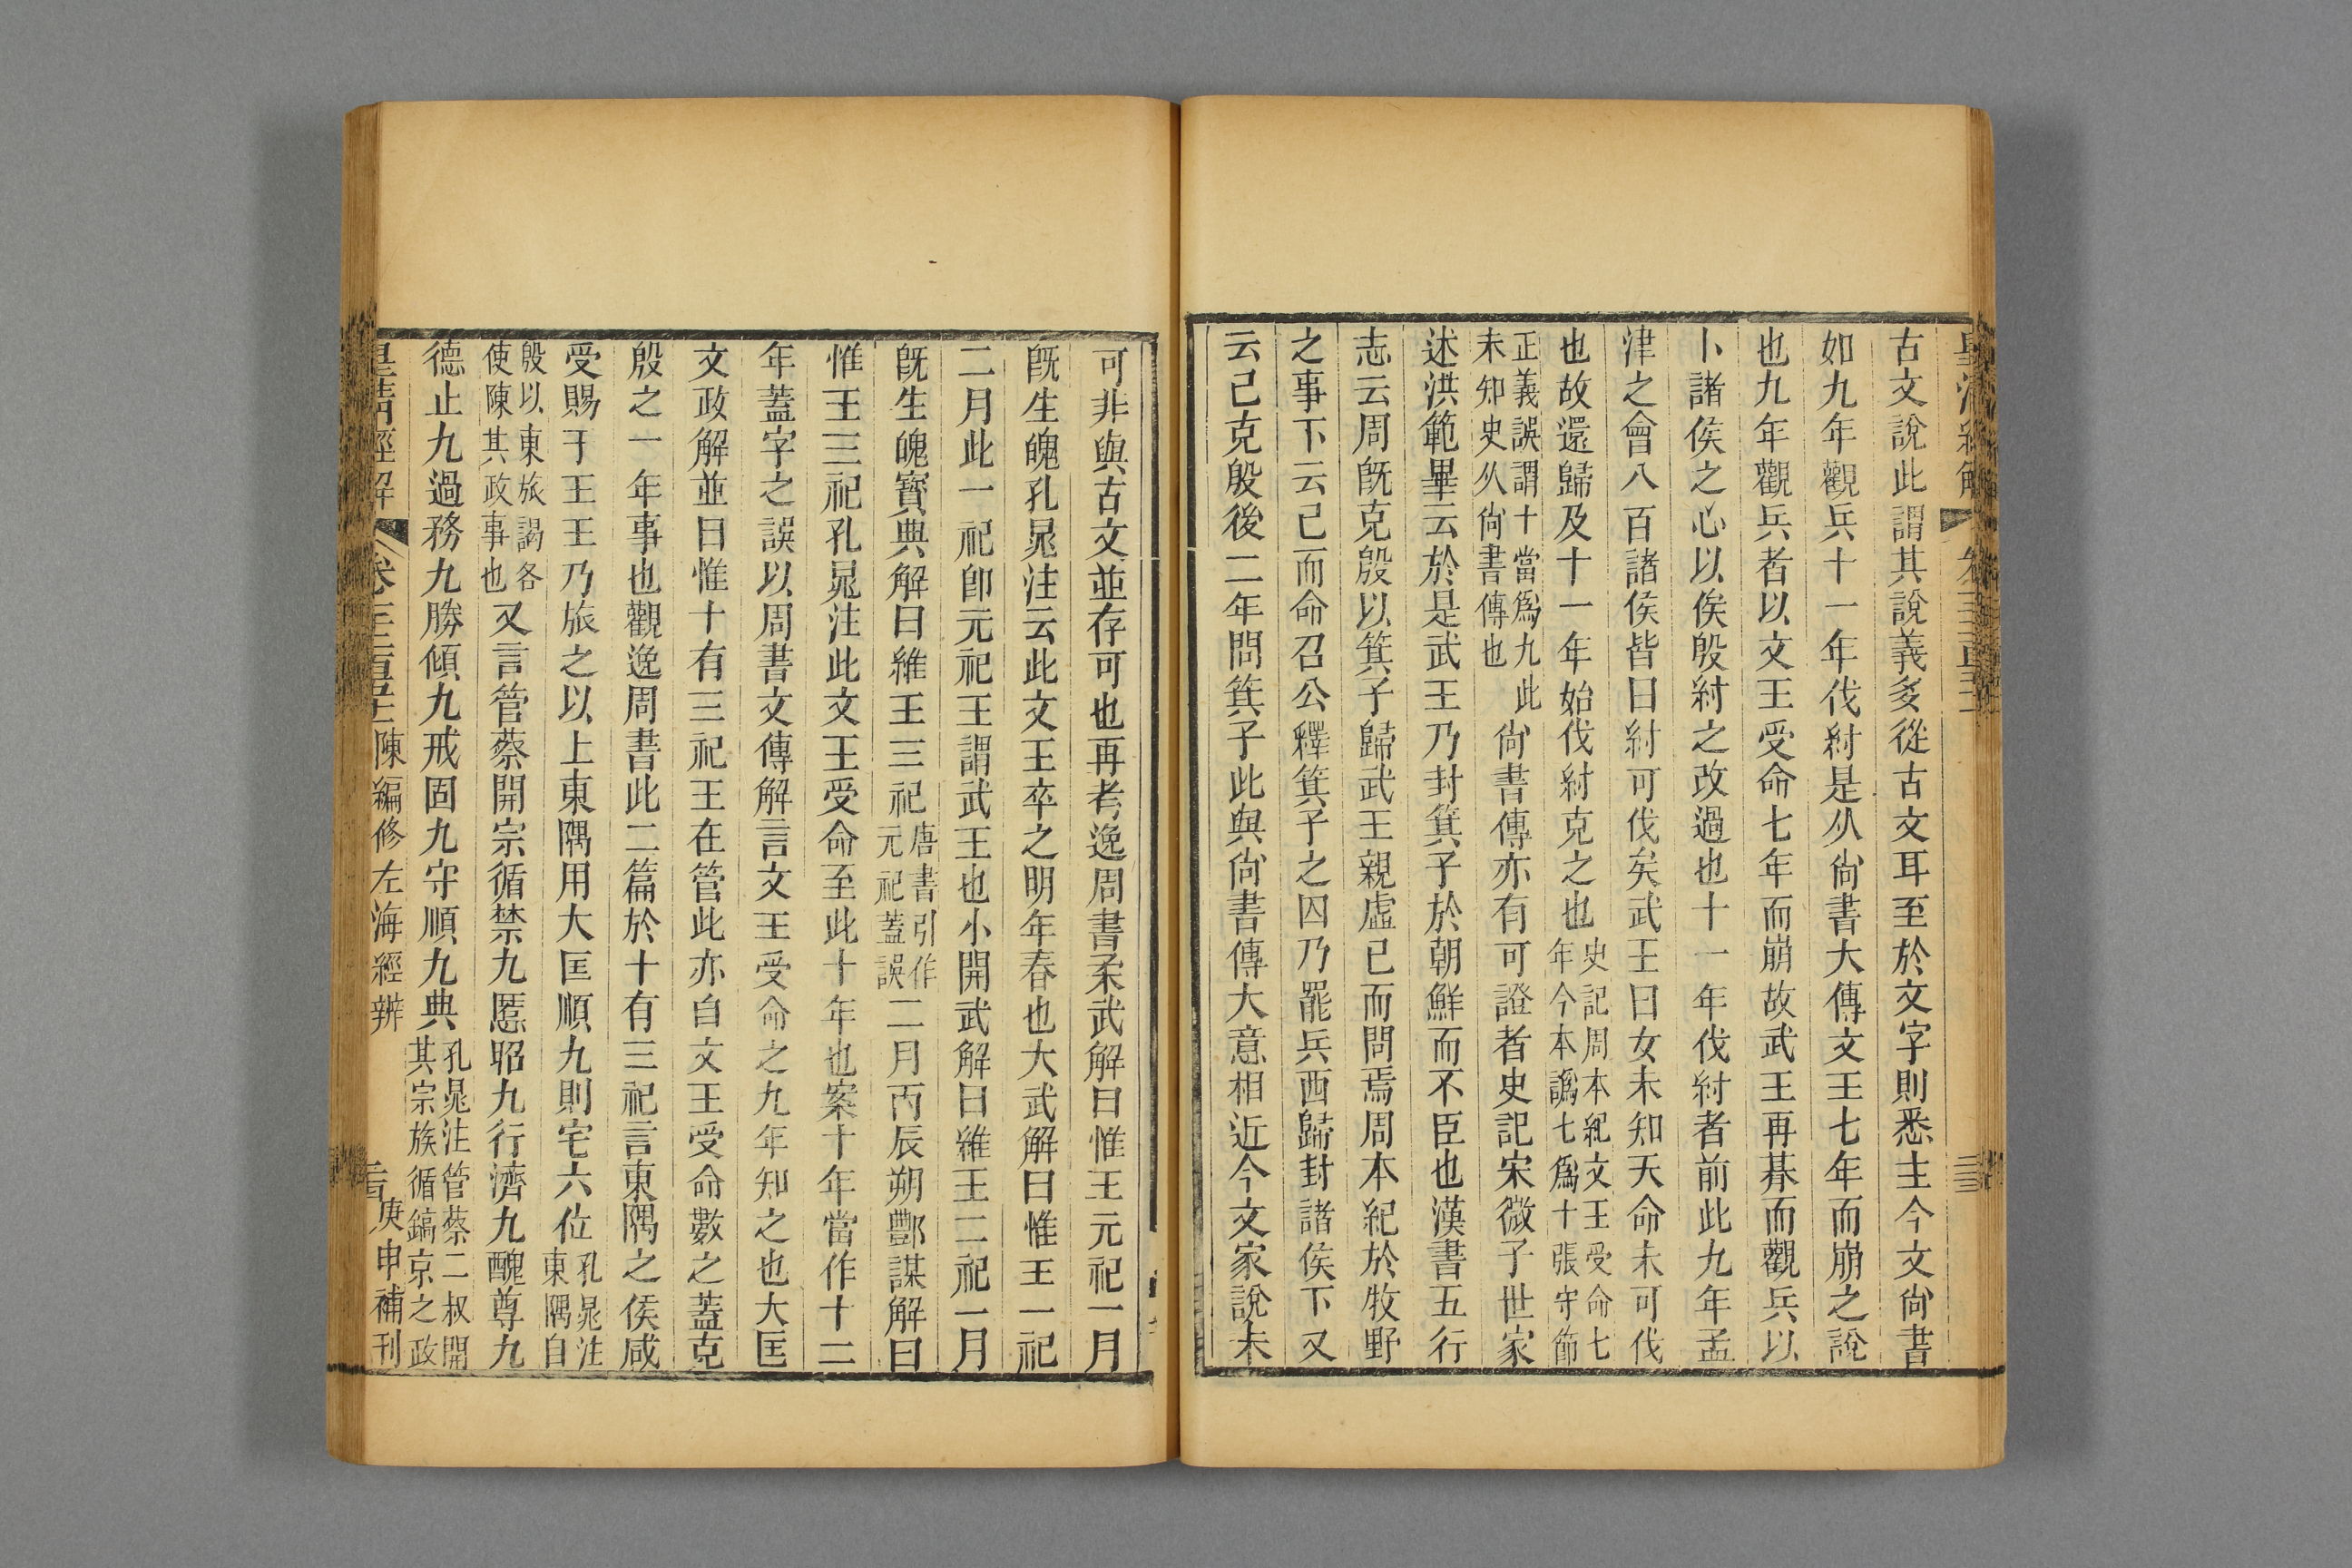 古文說此謂其說義多從古文耳至於文字則悉主今文尙書
如九年觀兵十一年伐紂是从尙書大傳文王七年而崩之說
也九年觀兵者以文王受命七年而崩故武王再朞而觀兵以
卜諸侯之心以俟殷紂之改過也十一年伐紂者前此九年孟
津之會八百諸侯皆曰紂可伐矣武王曰女未知天命未可伐
也故還歸及十一年始伐紂克之也史記周本紀文王受命七年今本譌七爲十張守節
正義誤謂十當爲九此未知史从尙書傳也尙書傳亦有可證者史記宋微子世家
述洪範畢云於是武王乃封箕子於朝鮮而不臣也漢書五行
志云周旣克殷以箕子歸武王親虛己而問焉周本紀於牧野
之事下云已而命召公釋箕子之囚乃罷兵西歸封諸侯下又
云已克殷後二年問箕子此與尙書傳大意相近今文家說未
可非與古文並存可也再考逸周書柔武解曰惟王元祀一月
旣生魄孔晁注云此文王卒之明年春也大武解曰惟王一祀
二月此一祀卽元祀王謂武王也小開武解曰維王二祀一月
旣生魄寳典解曰維王三祀唐書引作元祀蓋誤二月丙辰朔酆謀解曰
惟王三祀孔晁注此文王受命至此十年也案十年當作十二
年蓋字之誤以周書文傳解言文王受命之九年知之也大匡
文政解並曰惟十有三祀王在管此亦自文王受命數之蓋克
殷之一年事也觀逸周書此二篇於十有三祀言東隅之侯咸
受賜于王王乃旅之以上東隅用大匡順九則宅六位孔晁注東隅自
殷以東旅謁各使陳其政事也又言管蔡開宗循禁九慝昭九行濟九醜尊九
德止九過務九勝傾九戒固九守順九典孔晁注管蔡二叔開其宗族循鎬京之政
皇淸經解 卷 陳編修左海經辨 庚申補刊